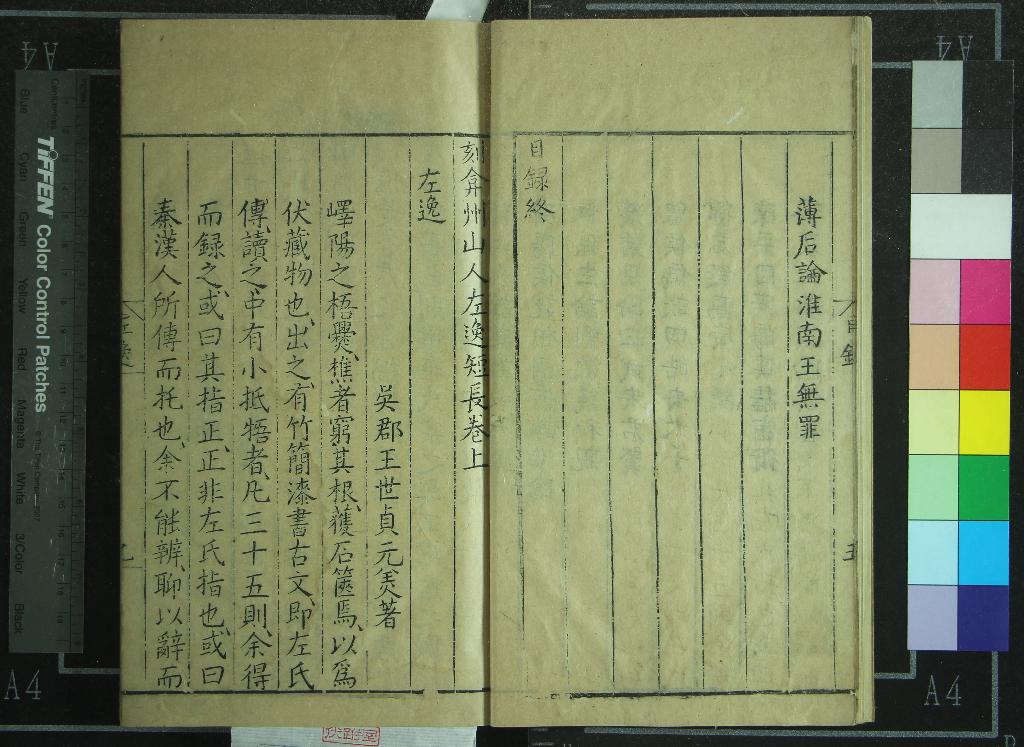 薄后論淮南王無罪
目録終
刻弇州山人左逸短長卷上
左逸
吳郡王世貞元美著
嶧陽之梧爨樵者窮其根獲石篋焉以爲
伏藏物也出之有竹簡漆書古文即左氏
傳讀之中有小抵牾者凡三十五則余得
而録之或曰其指正正非左氏指也或曰
秦漢人所傳而托也余不能辨聊以辭而
目録
五
TIFFEN Color Control Patches
Blue
Cyan
Green
Yellow
Red
Magenta
White
3/Color
Black
A4
A4
A4
A4